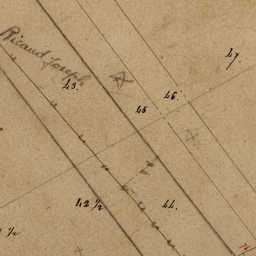 Ricaud Joseph
47.
43.
46.
45
42 ½
44.
½